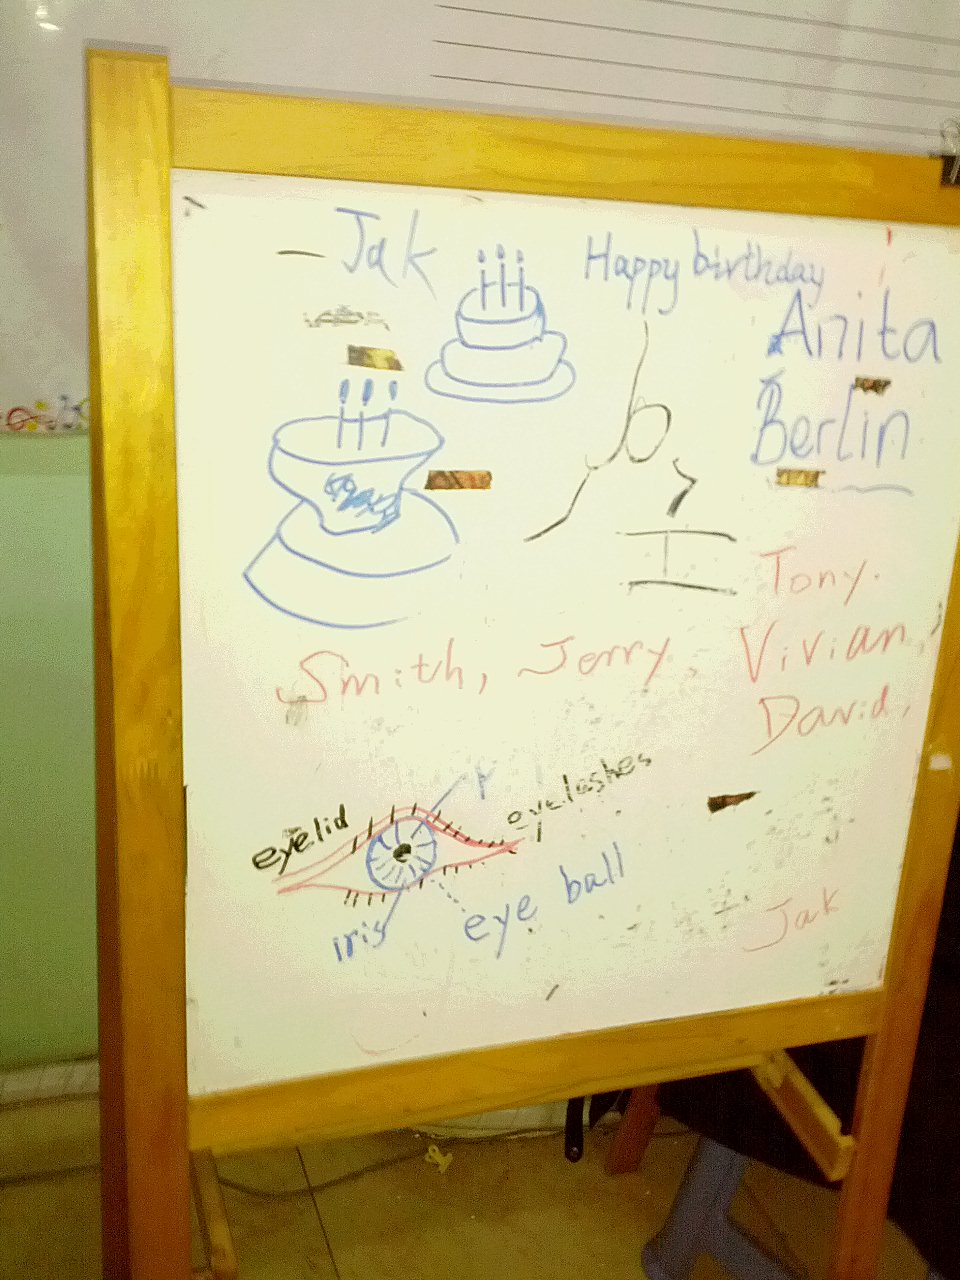 Jak
Happy birthday
Anita
Berlin
Tony.
Smith, Jerry, Vivian,
David,
eyelid
eyelashes
iris
eye ball
Jak